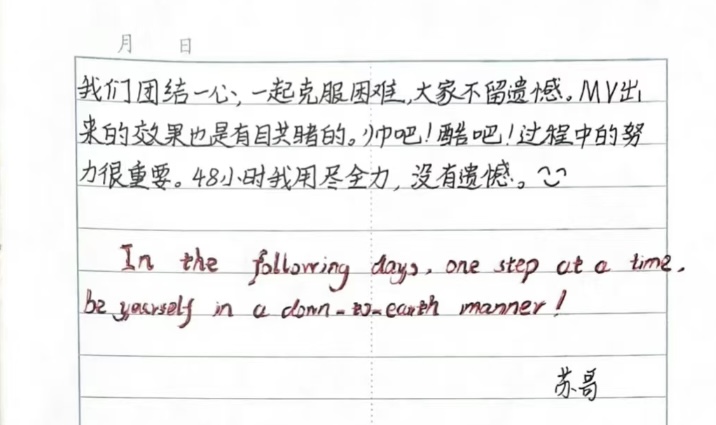 月 日
我们团结一心,一起克服困难,大家不留遗憾。MV出
来的效果也是有目共睹的。帅吧!酷吧!过程中的努
力很重要。48小时我用尽全力,没有遗憾。
In the following days, one step at a time,
be yourself in a down-to-earth manner!
苏哥